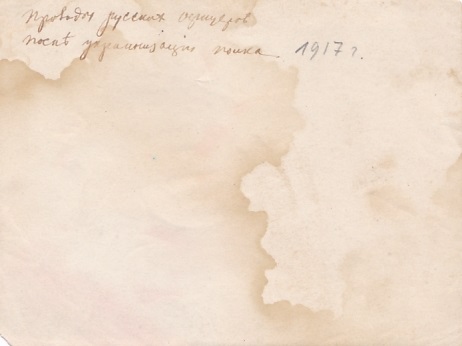 Проводы русских офицеров
послѣ украинизаціи полка 1917 г.